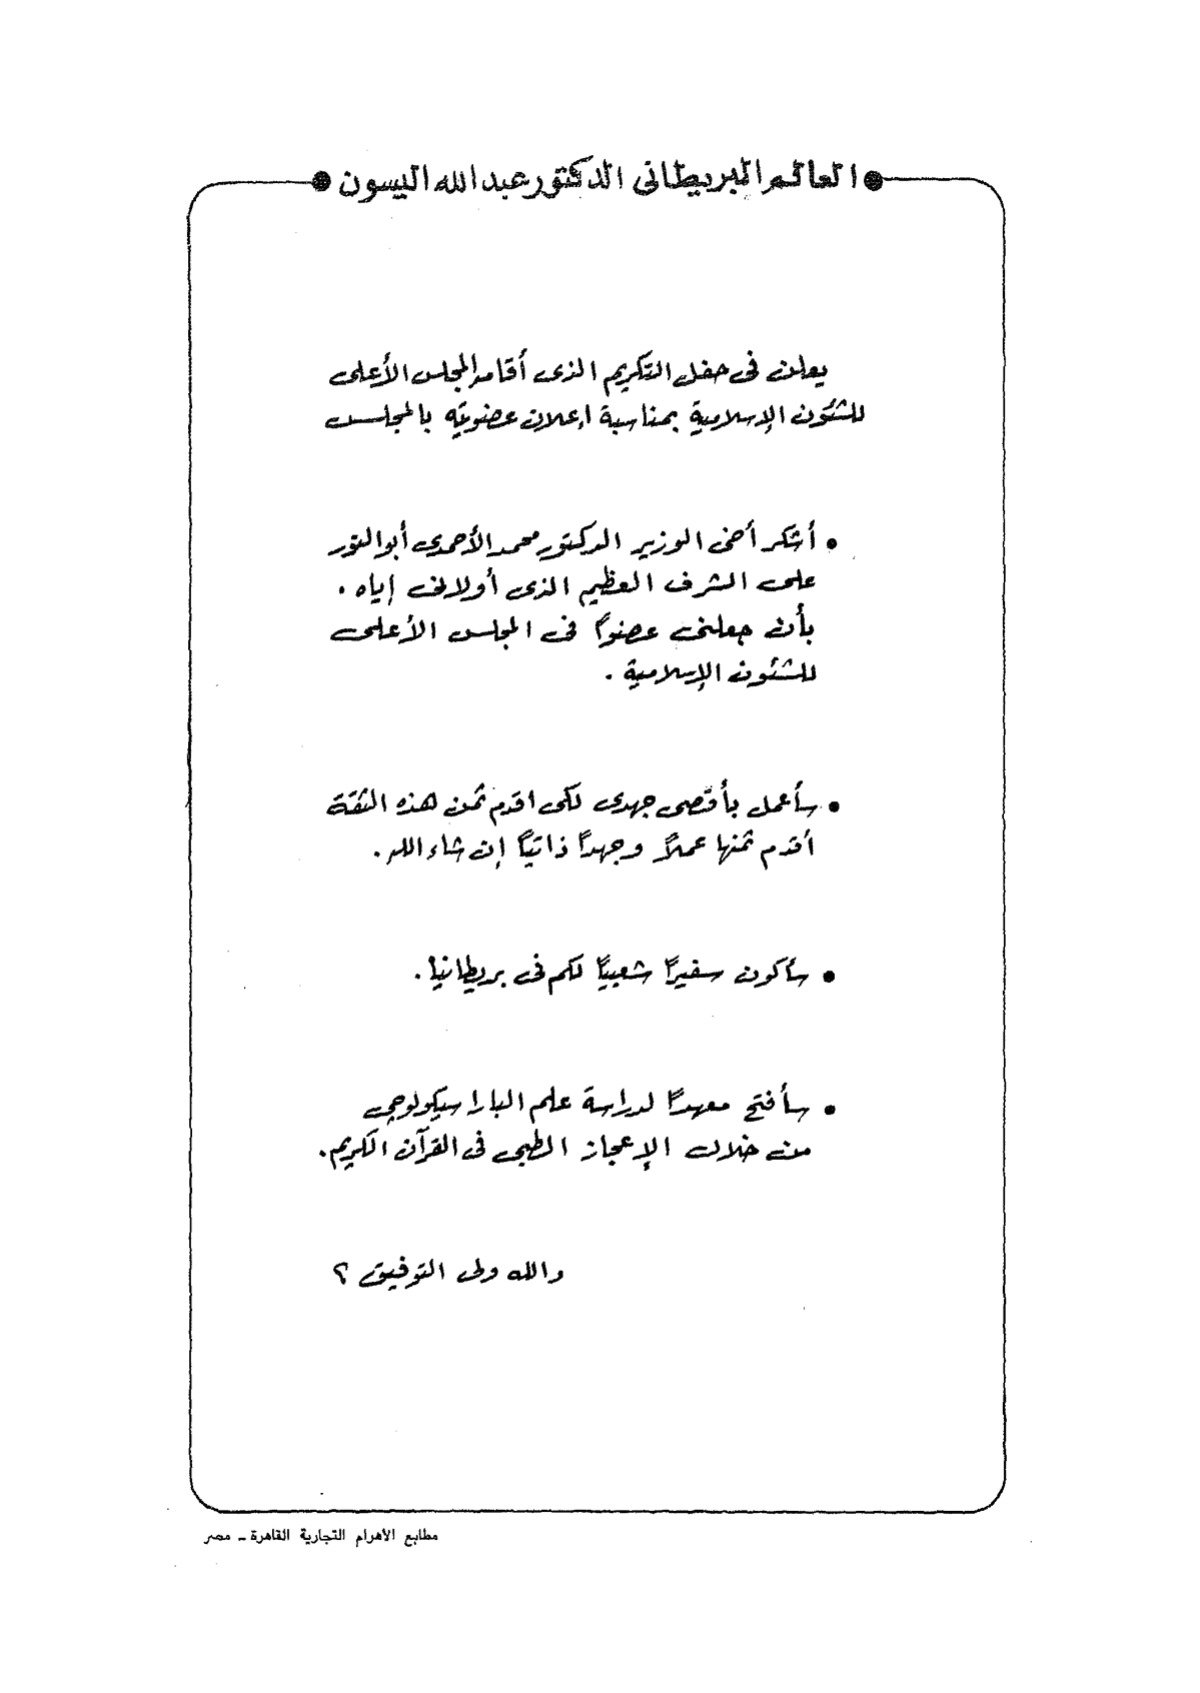 ● العالم البريطانى الدكتور عبد الله اليسون ●
يعلن فى حفل التكريم الذى أقامه المجلس الأعلى
للشئون الإسلامية بمناسبة إعلان عضويته بالمجلس
● أشكر أخى الوزير الدكتور محمد الأحمدى أبو النور
على الشرف العظيم الذى أولانى إياه .
بأن جعلنى عضواً فى المجلس الأعلى
للشئون الإسلامية .
● سأعمل بأقصى جهدى لكى اقدم ثمن هذه الثقة
أقدم ثمنها عملاً وجهداً ذاتياً إن شاء الله .
● سأكون سفيراً شعبياً لكم فى بريطانيا .
● سأفتح معهداً لدراسة علم الباراسيكولوجى
من خلال الإعجاز الطبى فى القرآن الكريم .
والله ولى التوفيق ؟
مطابع الأهرام التجارية القاهرة ـ مصر